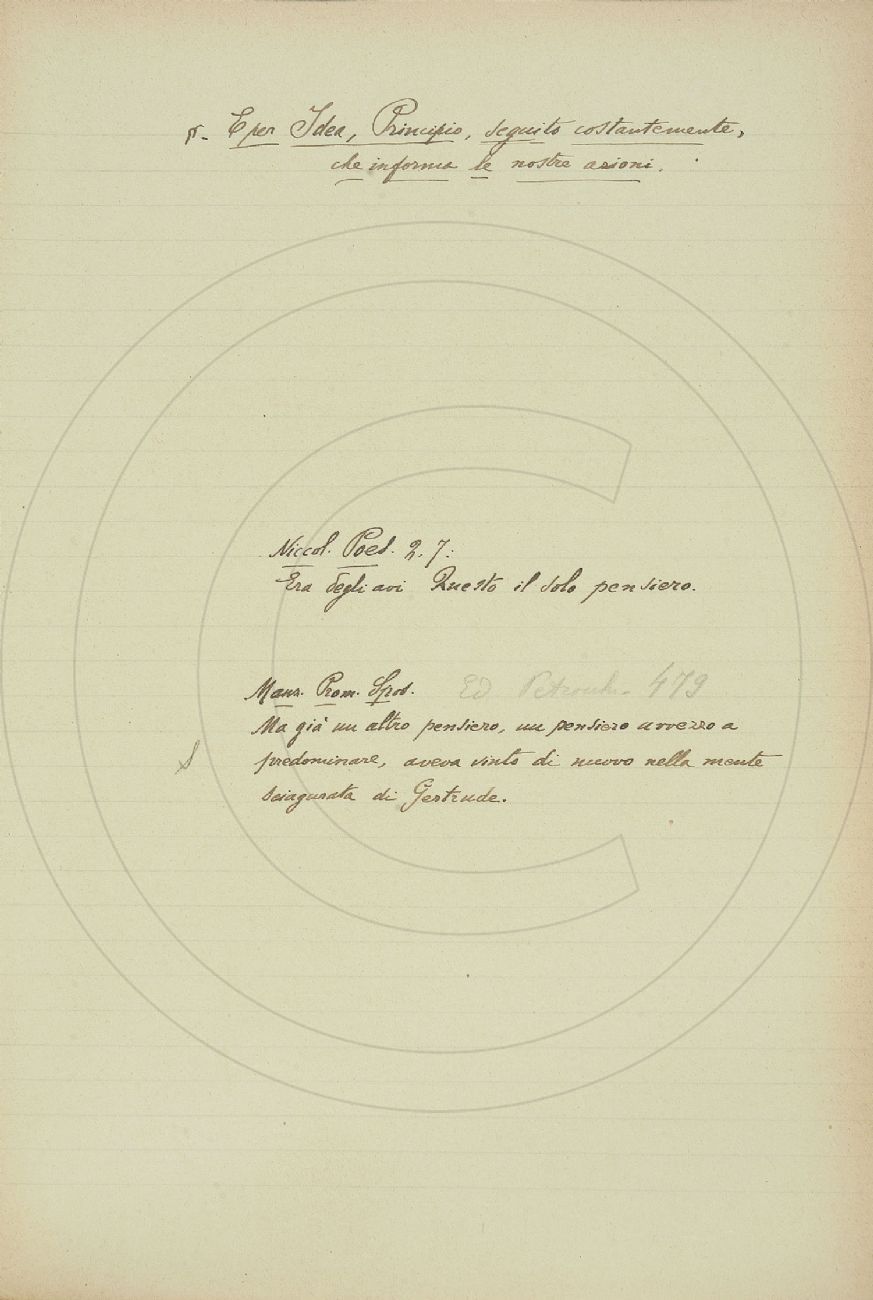 §. E per Idea, Principio, seguito costantemente,
che informa le nostre azioni.
Niccol. Poes. 2. 7:
Era degli avi Questo il solo pensiero.
Manz. Prom. Spos. Ed 479
Ma già un altro pensiero, un pensiero avvezzo a
predominare, aveva vinto di nuovo nella mente
sciagurata di Gertrude.